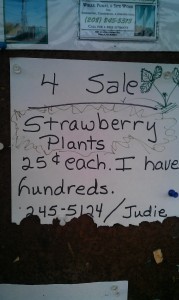 4 Sale
Strawberry
Plants
25¢ each. I have
hundreds.
245-5124/Judie